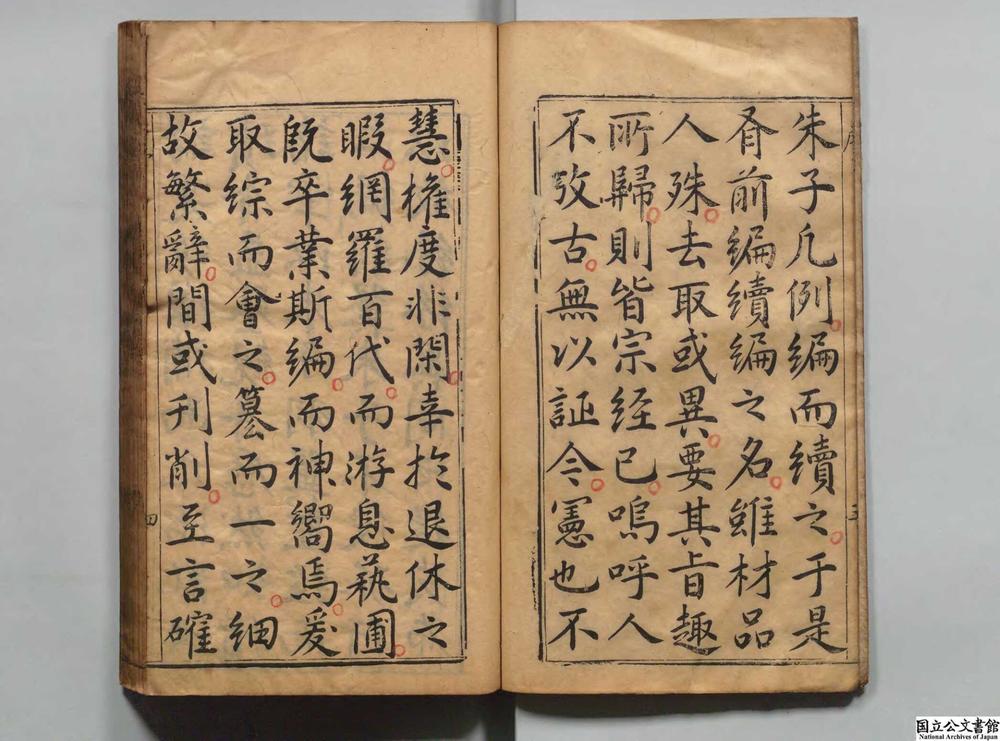 朱子凢例編而續之于是
胥前編續編之名雖材品
人殊去取或異要其旨趣
所歸則皆宗經已嗚呼人
不攷古無以証今憲也不
慧權度非閑幸扵退休之
暇網羅百代而游息蓺圃
旣卒業斯編而神嚮焉爰
取綜而會之纂而一之細
故繁辭間或刋削至言確
三
四
国立公文書館
National Archives of Japan